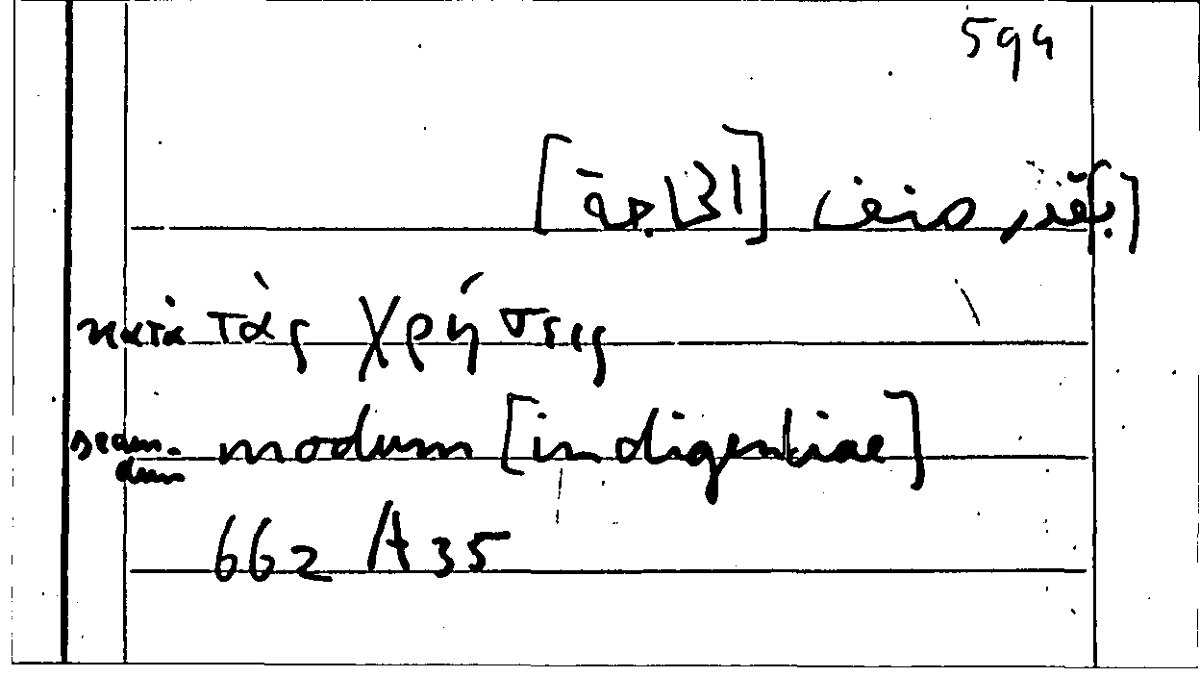 594
[بقدر] صنف [الحاجة]
κατὰ τὰς χρήσεις
secundum modum [indigentiae]
662 A 35